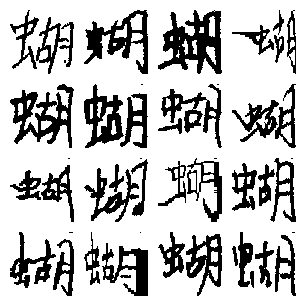 蝴蝴蝴蝴
蝴蝴蝴蝴
蝴蝴蝴蝴
蝴蝴蝴蝴